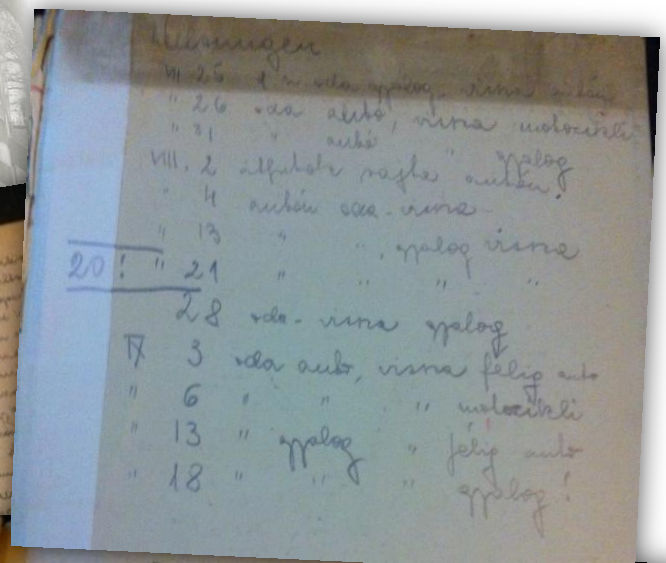 Melsungen
VII 25 oda gyalog, vissza autón
" 26 oda autó, vissza motocikli
" 31 " autó " gyalog
VIII. 2 autón!
" 4 autón oda-vissza
" 13 " ", gyalog vissza
20! " 21 " " " "
28 oda-vissza gyalog
IX 3 oda autó, vissza félig auto
" 6 " " " motocikli
" 13 " gyalog " félig auto
" 18 " " " gyalog!